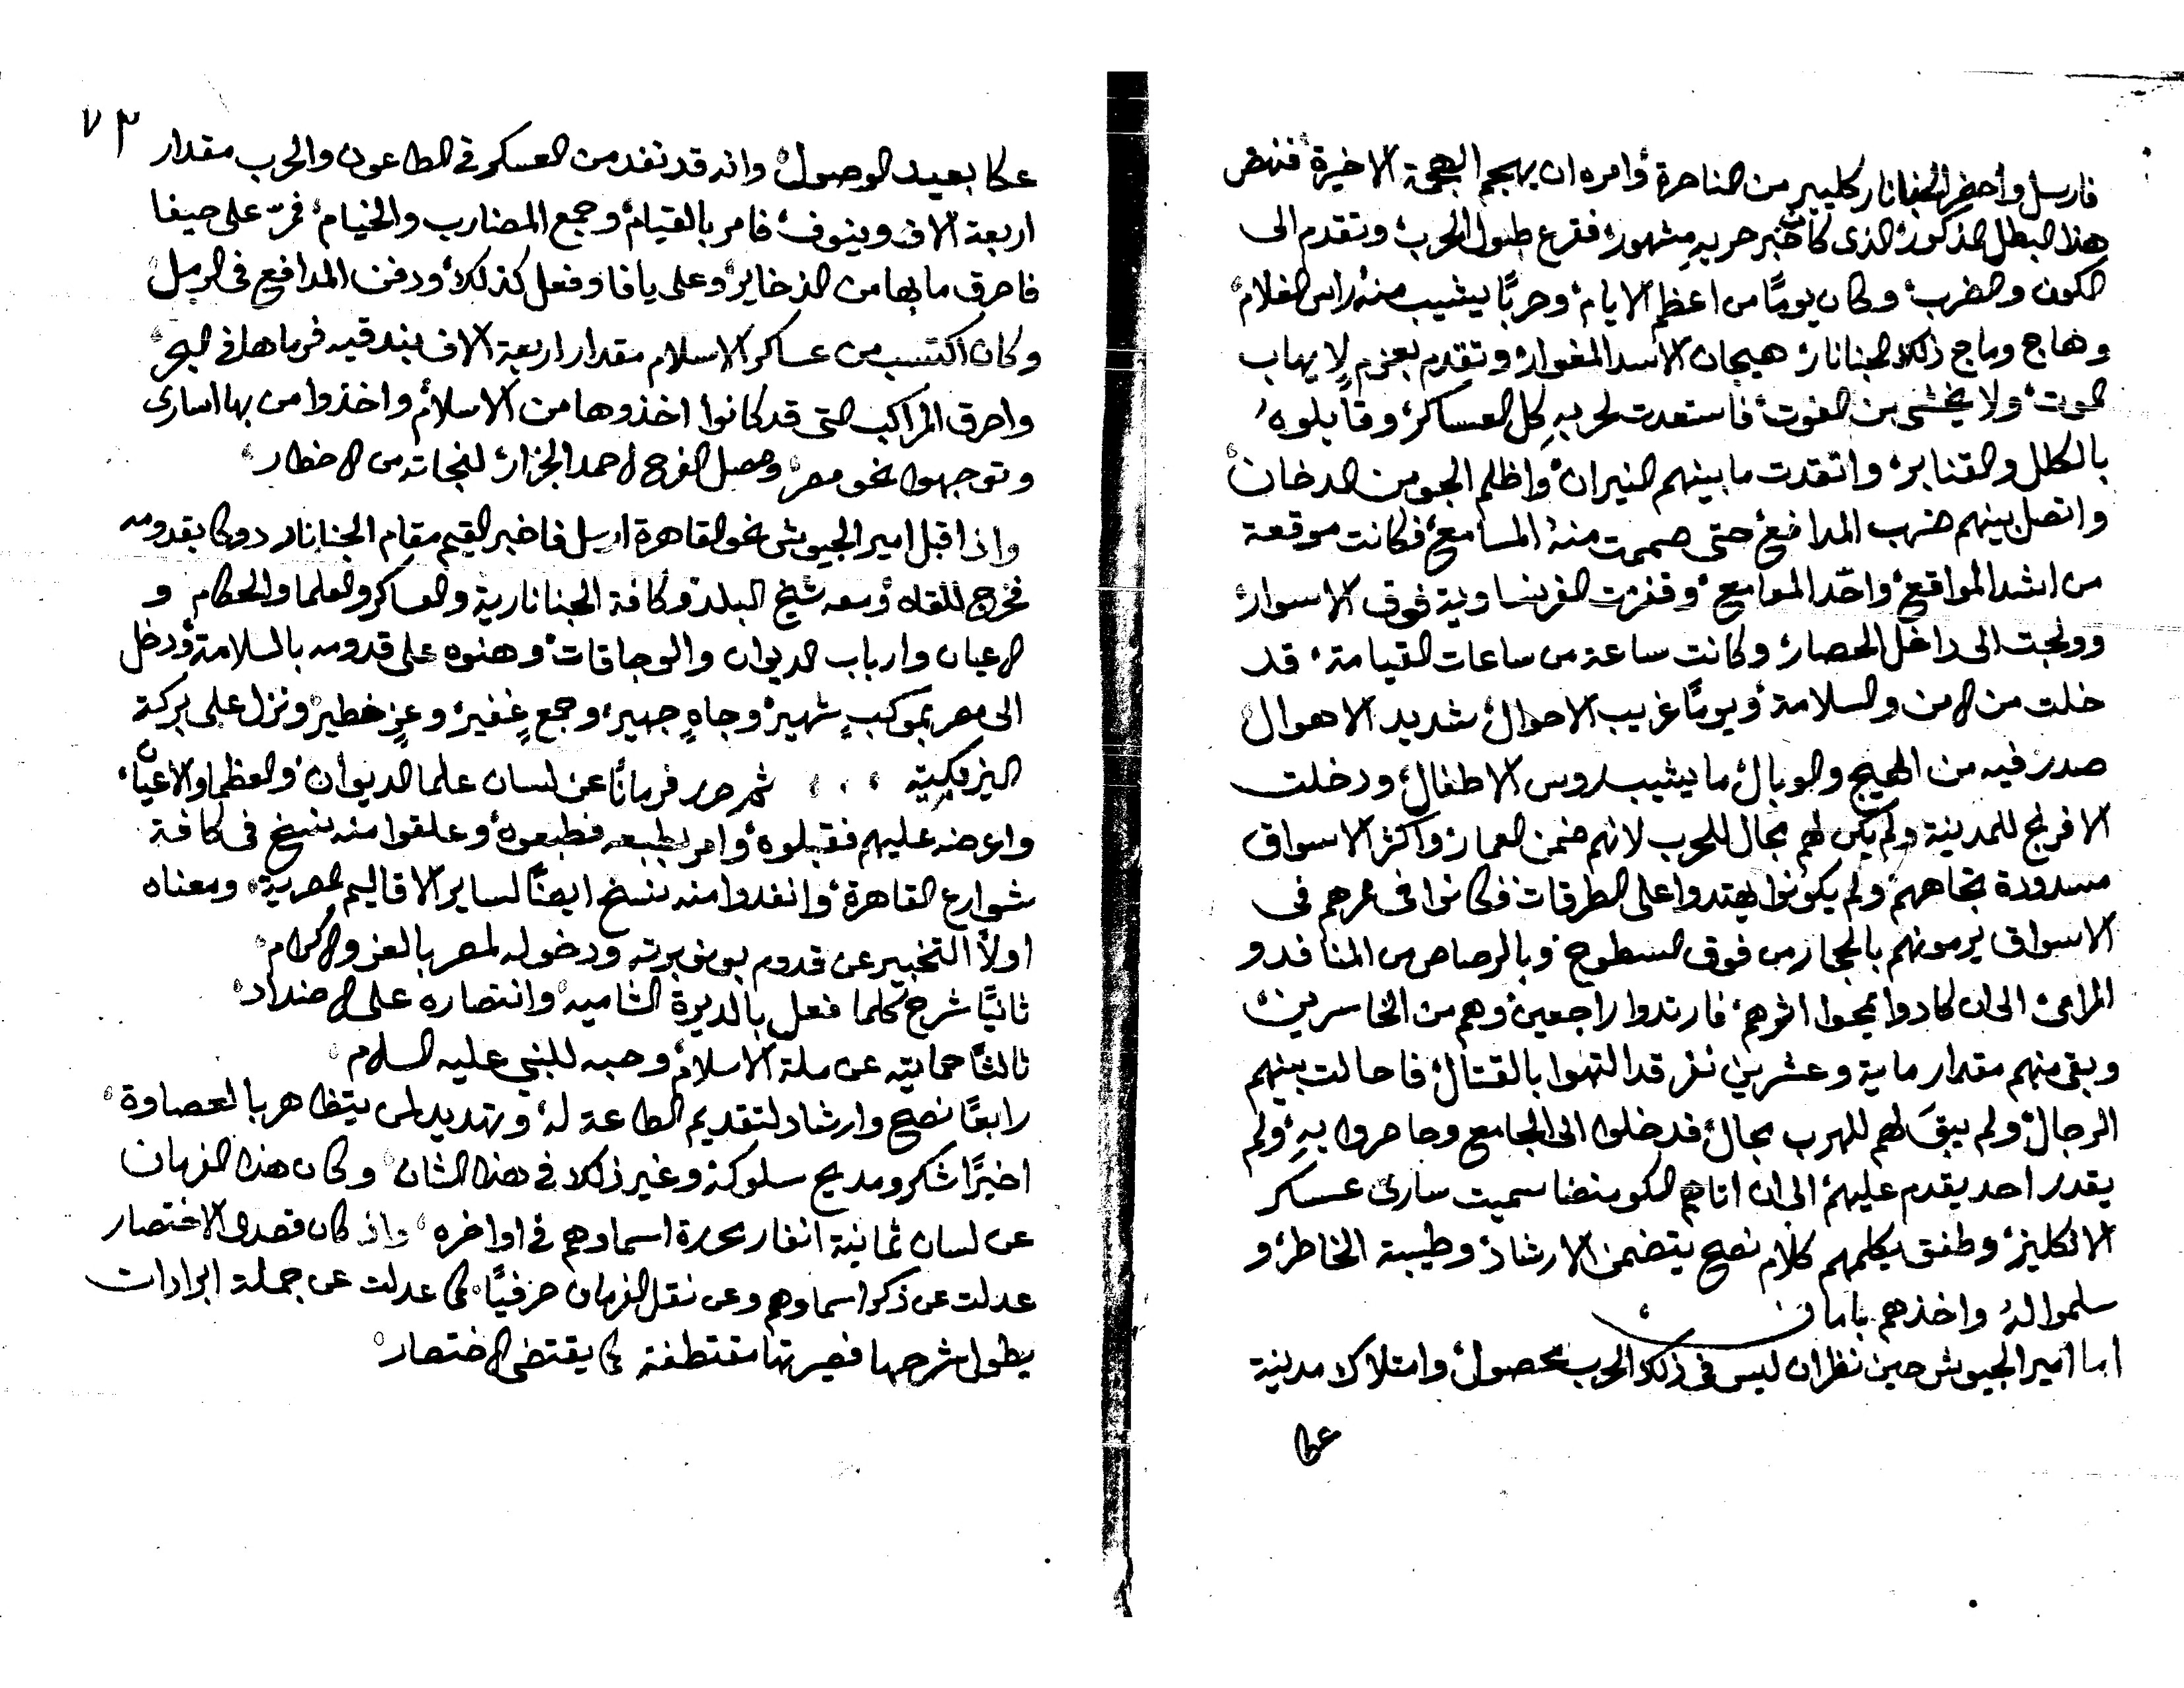 فارسل واحضر الجنانار كليبر من الناصرة وامره ان يهجم الهجمة الاخيرة فنهض
هذا البطل المذكور الذى كانت خبر حربهِ مشهور فقرع طبول الحرب وتقدم الى
الكون والضرب وكان يومًا من اعظم الايام وحربًا يشيب منه راس الغلام
وهاج وماج ذلك الجنانار هيجان الاسد المغوار وتقدم بعزم لا يهاب
الموت ولا يخشى من الفوت فاستعدت لحربهِ كل العساكر وقابلوه
بالكلل والقنابر واتقدت ما بينهم النيران واظلم الجو من الدخان
واتصل بينهم ضرب المدافع حتى صممت منه المسامع فكانت موقعة
من اشد المواقع واحدّ المعامع وقفزت الفرنساوية فوق الاسوار
وولجت الى داخل الحصار وكانت ساعة من ساعات القيامة قد
خلت من الامن والسلامة ويومًا غريب الاحوال شديد الاهوال
صدر فيه من الهجيج والوبال ما يشيب لروس الاطفال ودخلت
الافرنج للمدينة ولم يكن لهم مجال للحرب لانهم ضمن العمار واكثر الاسواق
مسدودة تجاههم ولم يكونوا يهتدوا على الطرقات فكانوا فى مرهم فى
الاسواق يرمونهم بالحجار من فوق السطوح وبالرصاص من المنافد و
المراعى الى ان كادوا يمحوا اثرهم فارتدوا راجعين وهم من الخاسرين
وبقى منهم مقدار ماية وعشرين نفر قد التهوا بالقتال فاحالت بينهم
الرجال ولم يبقَ لهم للهرب مجال فدخلوا الى الجامع وحاصروا بهِ ولم
يقدر احد يقدم عليهم الى ان اتاهم الكومنضا سميت سارى عسكر
الانكليز وطفق يكلمهم كلام نصح يتضمن الارشاد وطيبة الخاطر و
سلموا له واخذهم بامان
اما امير الجيوش حين نظر ان ليس فى ذلك الحرب محصول وامتلاك مدينة
عكا
٧٣
عكا بعيد الوصول وانه قد نفد من العسكر فى الطاعون والحرب مقدار
اربعة الاف وينوف فامر بالقيام وجمع المضارب والخيام فمرّ على حيفا
فاحرق ما بها من الذخاير وعلى يافا وفعل كذلك ودفن المدافع فى الرمل
وكان اكتسب من عساكر الاسلام مقدار اربعة الاف بندقيه فرماها فى البحر
واحرق المراكب التى قد كانوا اخذوها من الاسلام واخذوا من بها اسارى
وتوجهوا نحو مصر وحصل الفرح لاحمد الجزار لنجاته من الاخطار
واذا قبل امير الجيوش نحو القاهرة ارسل فاخبر القيم مقام الجنانار دوكا بقدومه
فخرج للقاه ومعه شيخ البلد وكافة الجنانارية والعساكر والعلما والحكام و
الاعيان وارباب الديوان والوجاقات وهنوه على قدومه بالسلامة ودخل
الى مصر بموكبٍ شهير وجاهٍ جهير وجمعٍ غفير وعزٍ خطير ونزل على بركة
اليزبكية ثم حرر فرمانًا عن لسان علما الديوان والعظما والاعيان
واعرضه عليهم فقبلوه وامر بطبعه فطبعوه وعلقوا منه نسخ فى كافة
شوارع القاهرة وانفدوا منه نسخ ايضًا لساير الاقاليم المصرية ومعناه
اولاً التخبير عن قدوم بونوبرته ودخوله لمصر بالعز والاكرام
ثانيًا شرح كلما فعل بالديرة الشاميه وانتصاره على الاضداد
ثالثًا حمايته عن ملة الاسلام وحبه للنبي عليه السلام
رابعًا نصح وارشاد لتقديم الطاعة له وتهديد لمن يتظاهر بالعصاوة
اخيرًا شكر ومديح سلوكه وغير ذلك فى هذا الشان وكان هذا الفرمان
عن لسان ثمانية انفار محررة اسماوهم فى اواخره واذ كان قصدى الاختصار
عدلت عن ذكر اسماوهم وعن نقل الفرمان حرفيًا كما عدلت عن جملة ايرادات
يطول شرحها فصيرتها مقتطفة كما يقتضى الاختصار